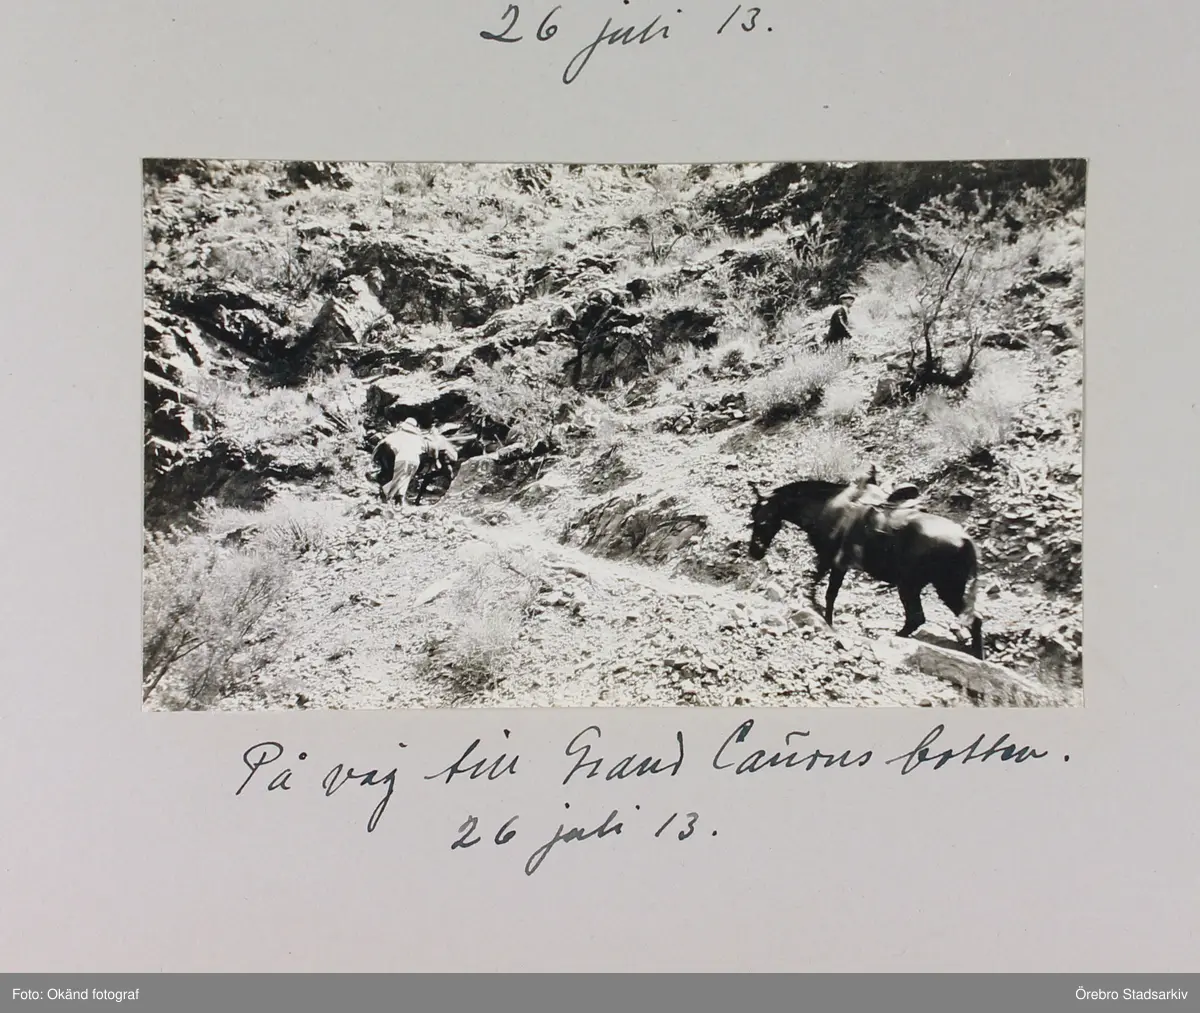 26 juli 13.
På väg till Grand Cañons botten.
26 juli 13.
Foto: Okänd fotograf
Örebro Stadsarkiv